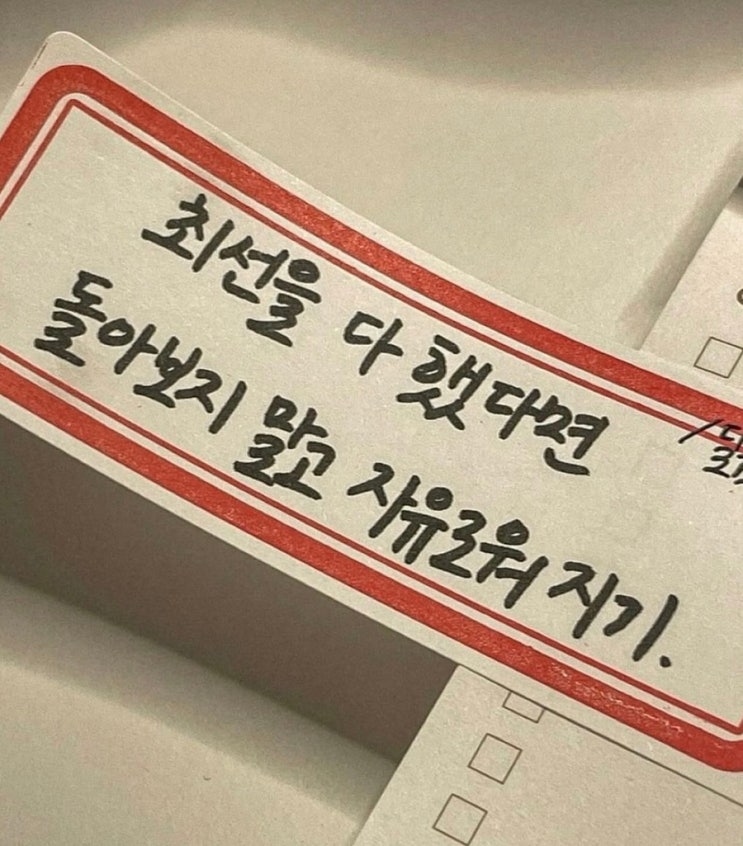 최선을 다 했다면
돌아보지 말고 자유로워 지기.